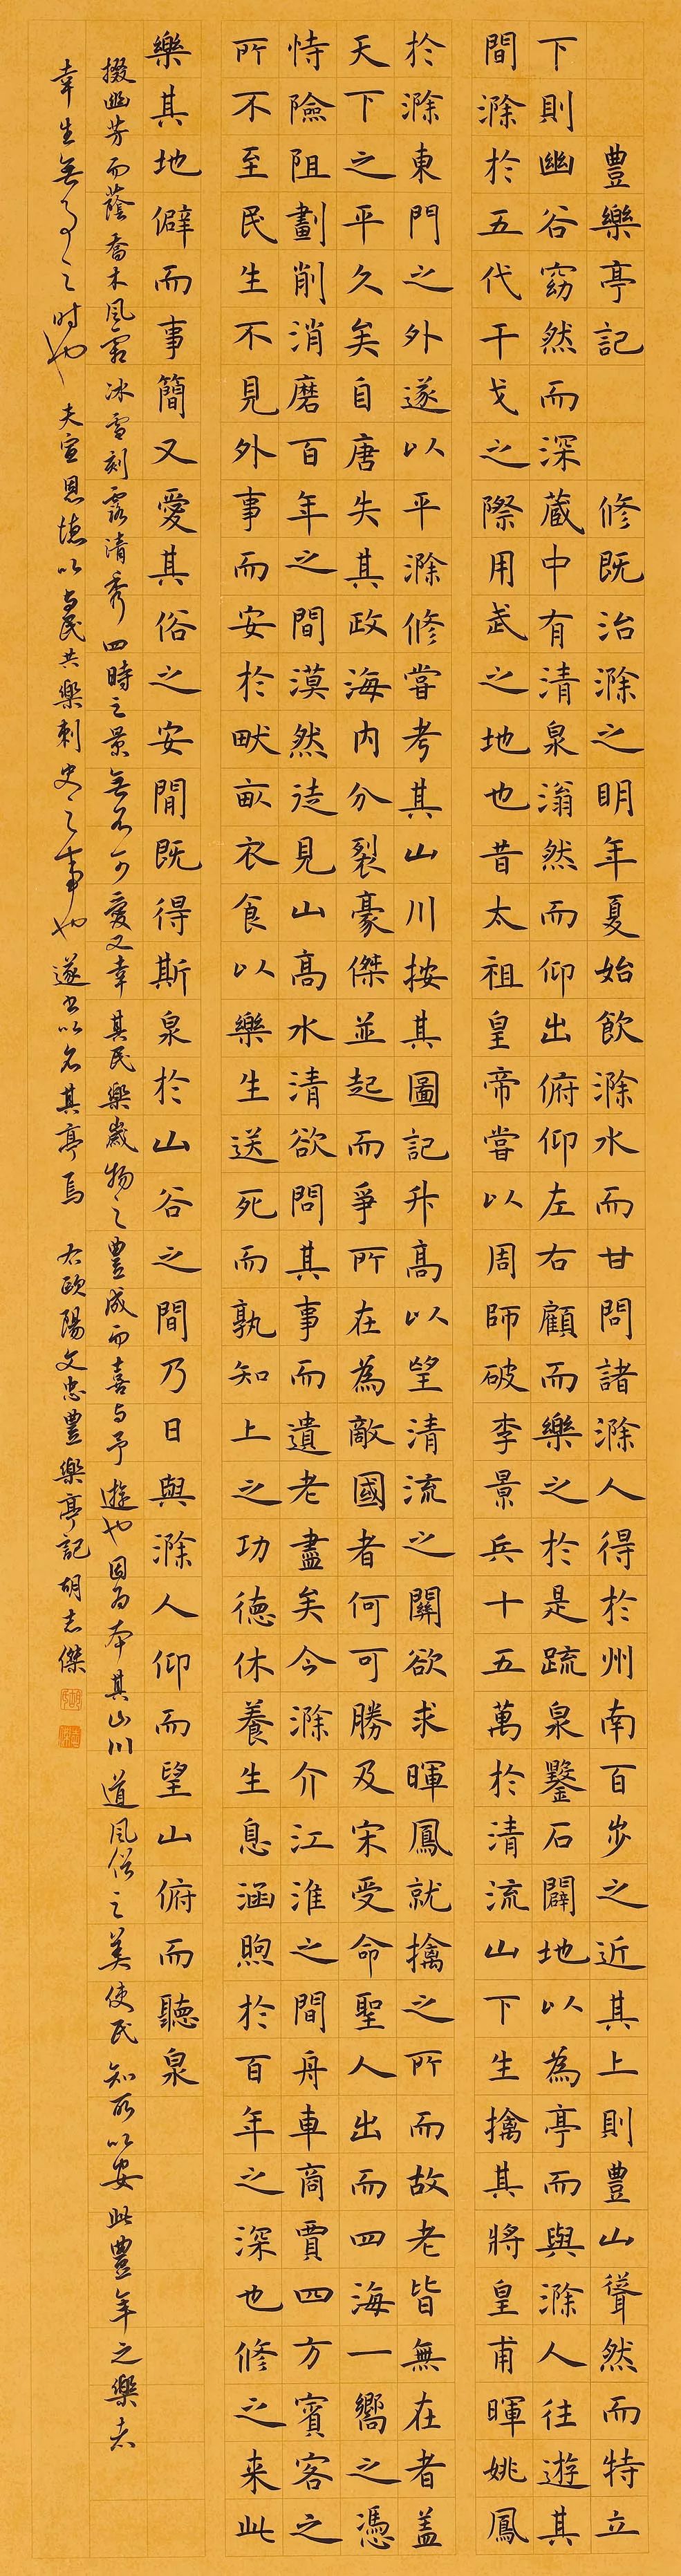 豐樂亭記 修既治滁之明年夏始飲滁水而甘問諸滁人得於州南百步之近其上則豐山聳然而特立
下則幽谷窈然而深藏中有清泉滃然而仰出俯仰左右顧而樂之於是疏泉鑿石闢地以為亭而與滁人往遊其
間滁於五代干戈之際用武之地也昔太祖皇帝嘗以周師破李景兵十五萬於清流山下生擒其將皇甫暉姚鳳
於滁東門之外遂以平滁修嘗考其山川按其圖記升高以望清流之關欲求暉鳳就擒之所而故老皆無在者盖
天下之平久矣自唐失其政海內分裂豪傑並起而爭所在為敵國者何可勝及宋受命聖人出而四海一嚮之憑
恃險阻劃削消磨百年之間漠然徒見山高水清欲問其事而遺老盡矣今滁介江淮之間舟車商賈四方賓客之
所不至民生不見外事而安於畎畝衣食以樂生送死而孰知上之功德休養生息涵煦於百年之深也修之来此
樂其地僻而事簡又愛其俗之安閒既得斯泉於山谷之間乃日與滁人仰而望山俯而聽泉
掇幽芳而蔭喬木風霜冰雪刻露清秀四時之景無不可愛又幸其民樂歲物之豐成而喜与予遊也因为本其山川道風俗之美使民知所以安此豐年之樂者
幸生無事之时也 夫宣恩德以与民共樂刺史之事也遂书以名其亭焉 右歐陽文忠豐樂亭記胡志傑